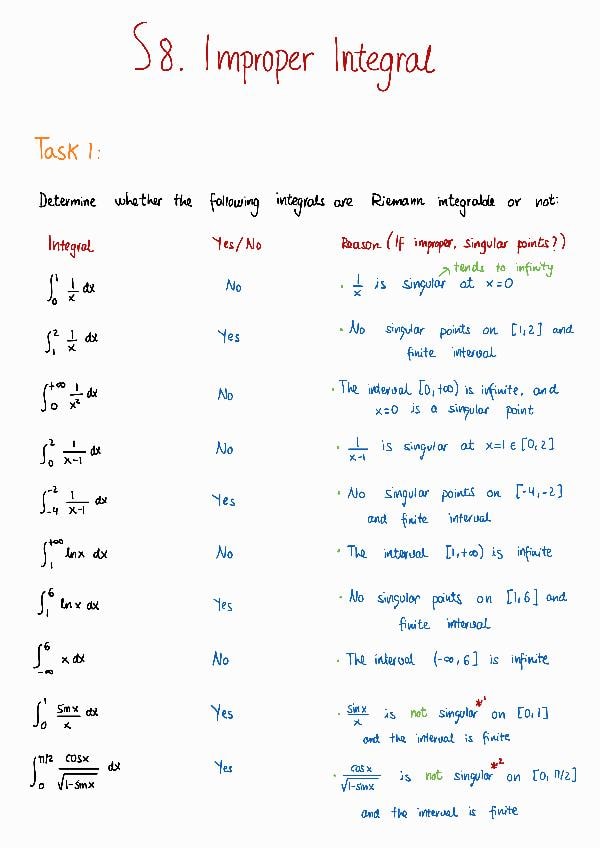 S8. Improper Integral
Task 1:
Determine whether the following integrals are Riemann integrable or not:
Integral Yes/No Reason (If improper, singular points?)
↗ tends to infinity
∫₀¹ 1/x dx No · 1/x is singular at x=0
∫₁² 1/x dx Yes · No singular points on [1,2] and
finite interval
∫₀^{+∞} 1/x² dx No · The interval [0,+∞) is infinite, and
x=0 is a singular point
∫₀² 1/(x-1) dx No · 1/(x-1) is singular at x=1 ∈ [0,2]
∫₋₄^{-2} 1/(x-1) dx Yes · No singular points on [-4,-2]
and finite interval
∫₁^{+∞} lnx dx No · The interval [1,+∞) is infinite
∫₁⁶ lnx dx Yes · No singular points on [1,6] and
finite interval
∫_{-∞}⁶ x dx No · The interval (-∞,6] is infinite
∫₀¹ sinx/x dx Yes · sinx/x is not singular*¹ on [0,1]
and the interval is finite
∫₀^{π/2} cosx/√(1-sinx) dx Yes · cosx/√(1-sinx) is not singular*² on [0,π/2]
and the interval is finite